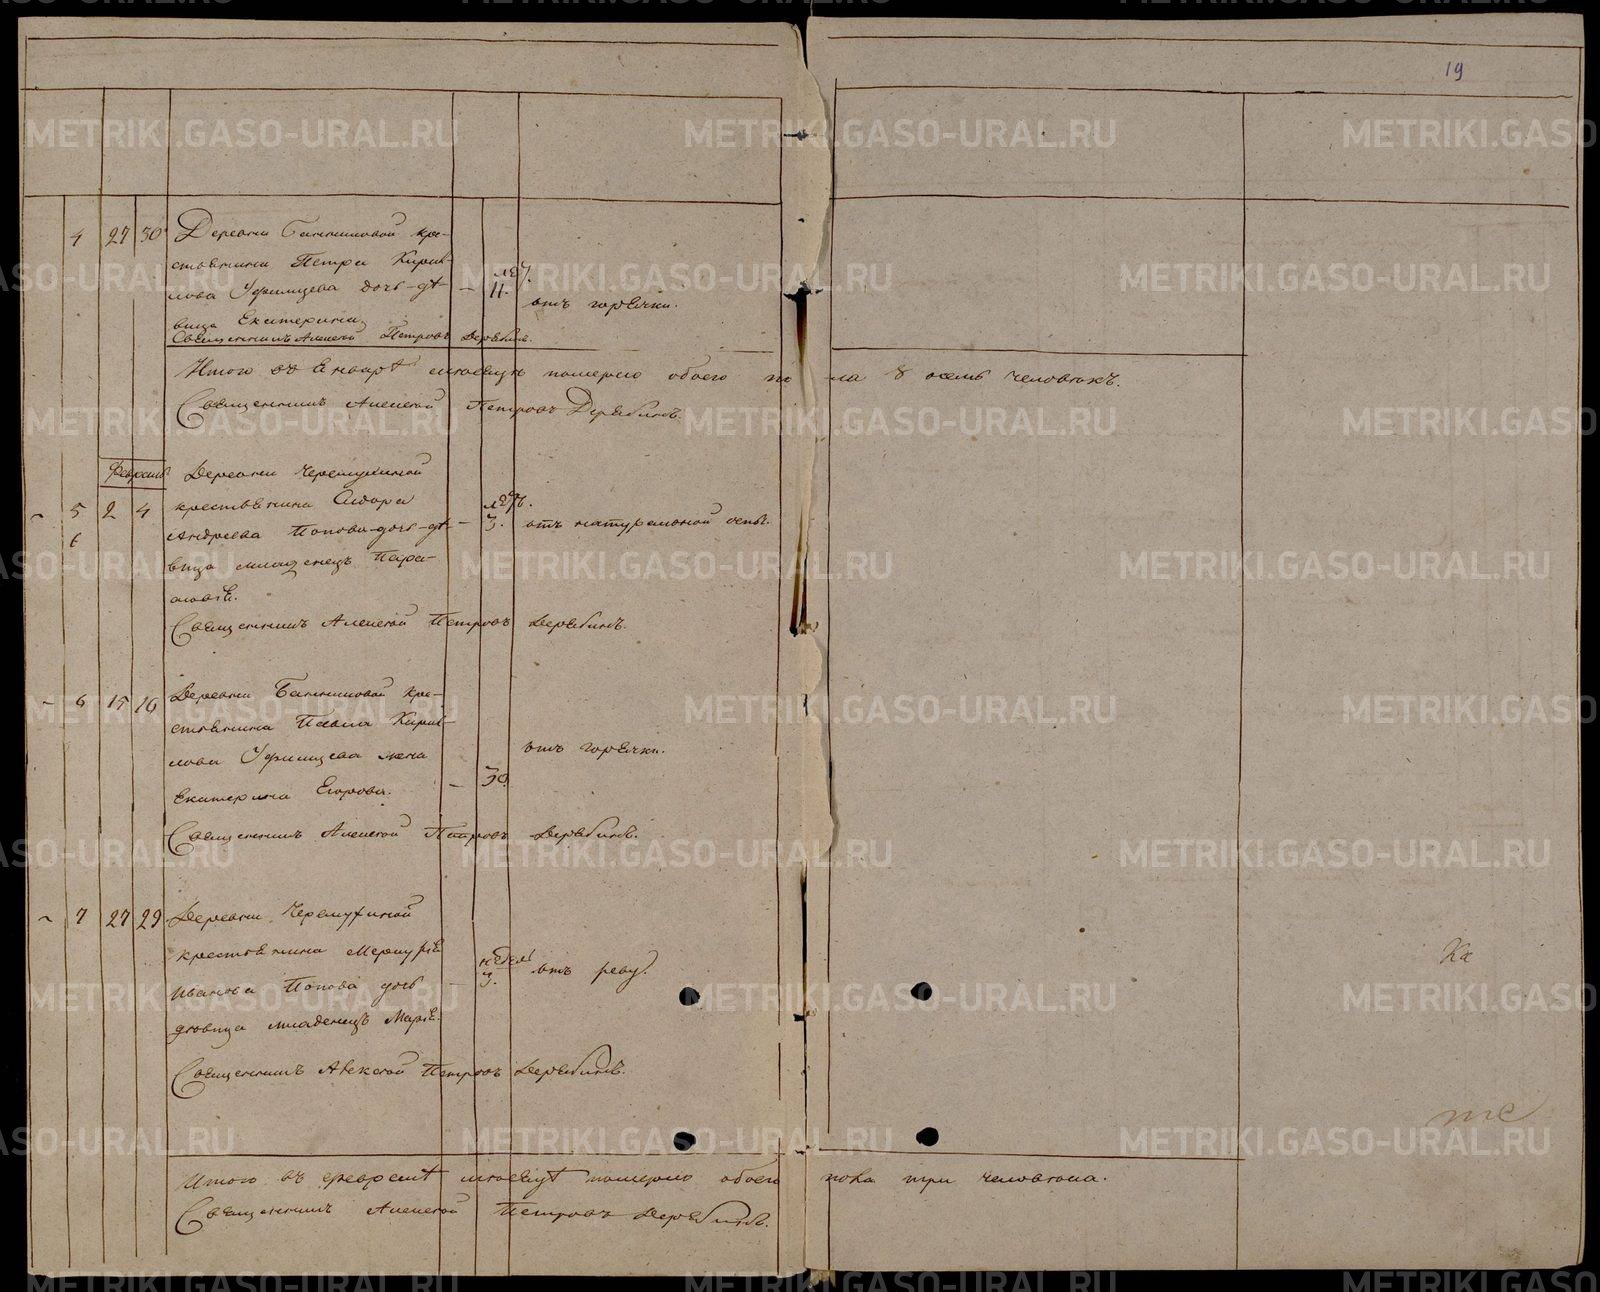 19
4 27 30 Деревни Банниковой кре-
стьянина Петра Кирил-
лова Уфимцева дочь-дѣ-
вица Екатерина
лѣт.
11. отъ горячки.
Священникъ Алексѣй Петровъ Дерябинъ.
Итого въ Январѣ мѣсяцѣ померло обоего пола 8 осемь человѣкъ.
Священникъ Алексѣй Петровъ Дерябинъ.
Февраль
5 2 4 Деревни Черемухиной
6
крестьянина Сидора
Андреева Попова-дочь-дѣ-
вица младенецъ Пара-
лѣтъ.
3. отъ натуральной оспы.
Священникъ Алексѣй Петровъ Дерябинъ.
6 15 16 Деревни Банниковой кре-
стьянина Павла Кирил-
лова Уфимцева жена
Екатерина Егорова.
30. отъ горячки.
Священникъ Алексѣй Петровъ Дерябинъ.
7 27 29 Деревни Черемухиной
крестьянина Меркурія
Иванова Попова дочь
дѣвица младенецъ Марія.
недѣль
3. отъ реву.
Священникъ Алексѣй Петровъ Дерябинъ.
Итого въ февралѣ мѣсяцѣ померло обоего пола три человѣка.
Священникъ Алексѣй Петровъ Дерябинъ.
Ка
те
METRIKI.GASO-URAL.RU